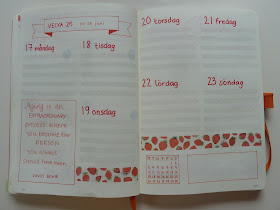 VECKA 25
17-23 juni
17 måndag
18 tisdag
19 onsdag
Aging is an
EXTRAORDINARY
process where
YOU BECOME THE
PERSON
YOU ALWAYS
SHOULD HAVE BEEN.
DAVID BOWIE
20 torsdag
21 fredag
22 lördag
23 söndag